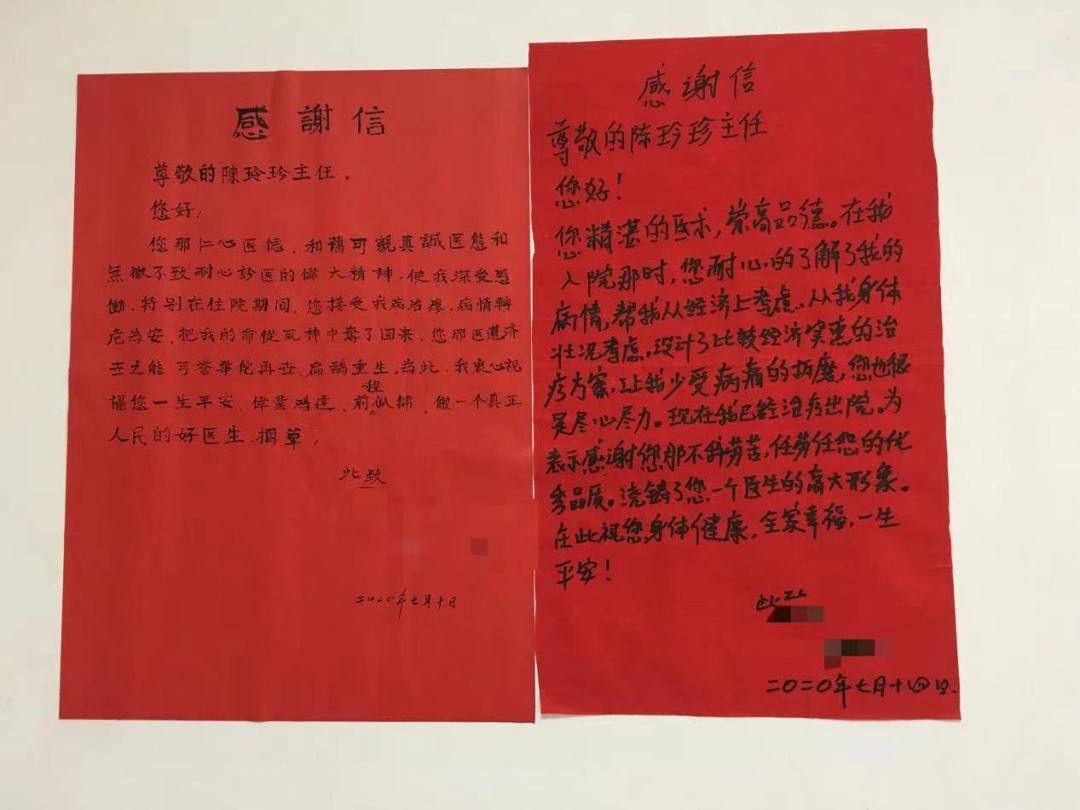 感謝信
尊敬的陳玲珍主任。
您好：
您那仁心医德、和藹可親真誠医態和
無微不致耐心診医的偉大精神，使我深受感
働，特别在住院期间，您接受我病治療，病情轉
危为安，把我的命從死神中奪了回来，您那医道济
世之能可誉華佗再世、扁鵲重生，为此，我衷心祝
福您一生平安、偉業鸿達、前程似锦、做一个真正
人民的好医生、
此致
二〇二〇年七月十日
感谢信
尊敬的陈玲珍主任
您好！
您精湛的医术，崇高品德。在我
入院那时，您耐心的了解了我的
病情，帮我从经济上考虑，从我身体
壮况考虑，设计了比较经济实惠的治
疗方案，让我少受病痛的折磨，您也很
是尽心尽力。现在我已经治疗出院。为
表示感谢您那不辞劳苦，任劳任怨的优
秀品质。浇铸了您一个医生的高大形象。
在此祝您身体健康，全家幸福，一生
平安！
此致
二〇二〇年七月十四日.